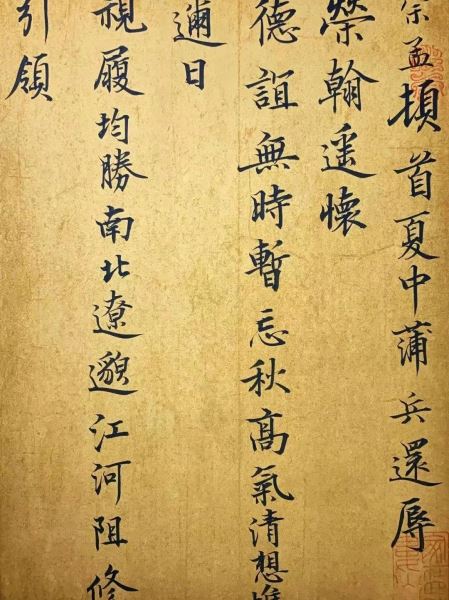 孟頓首夏中蒲兵還辱
榮翰遥懷
德誼無時暫忘秋高氣清想惟
邇日
視履均勝南北遼邈江河阻修
引領